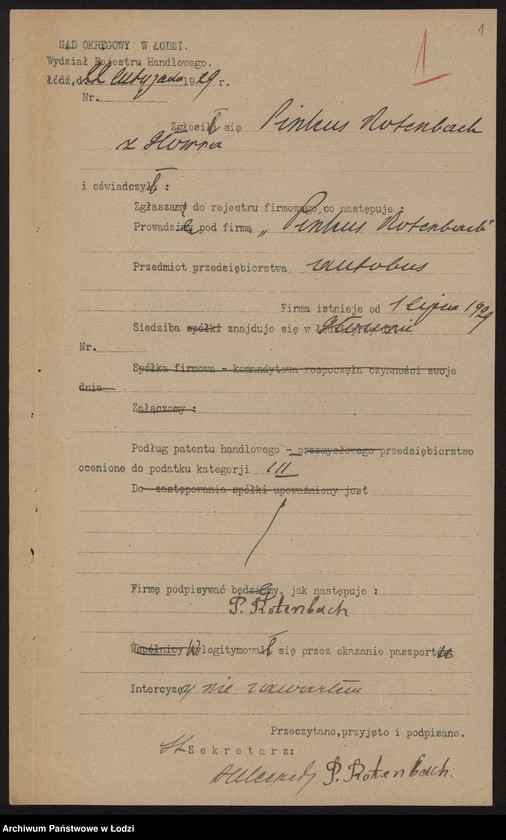 1
1
SĄD OKRĘGOWY W ŁODZI.
Wydział Rejestru Handlowego.
Łódź, d. 22 lutego 1929 r.
Nr.
Zgłosił się Pinkus Rotenbach
z Głowna
i oświadczył:
Zgłaszam do rejestru firmowego co następuje:
Prowadzę pod firmą „Pinkus Rotenbach"
Przedmiot przedsiębiorstwa autobus
Firma istnieje od 1 lipca 1929
Siedziba spółki znajduje się w Głownie
Nr.
Spółka firmowa - komandytowa rozpoczęła czynności swoje
dnia
Załączamy:
Podług patentu handlowego - przemysłowego przedsiębiorstwo
ocenione do podatku kategorji III
Do zastępowania spółki upoważniony jest
Firmę podpisywać będę, jak następuje:
P. Rotenbach
Wspólnicy Wylegitymował się przez okazanie paszportu
Intercyzy nie zawarłem
Przeczytano, przyjęto i podpisano.
St Sekretarz:
P. Rotenbach.
Archiwum Państwowe w Łodzi